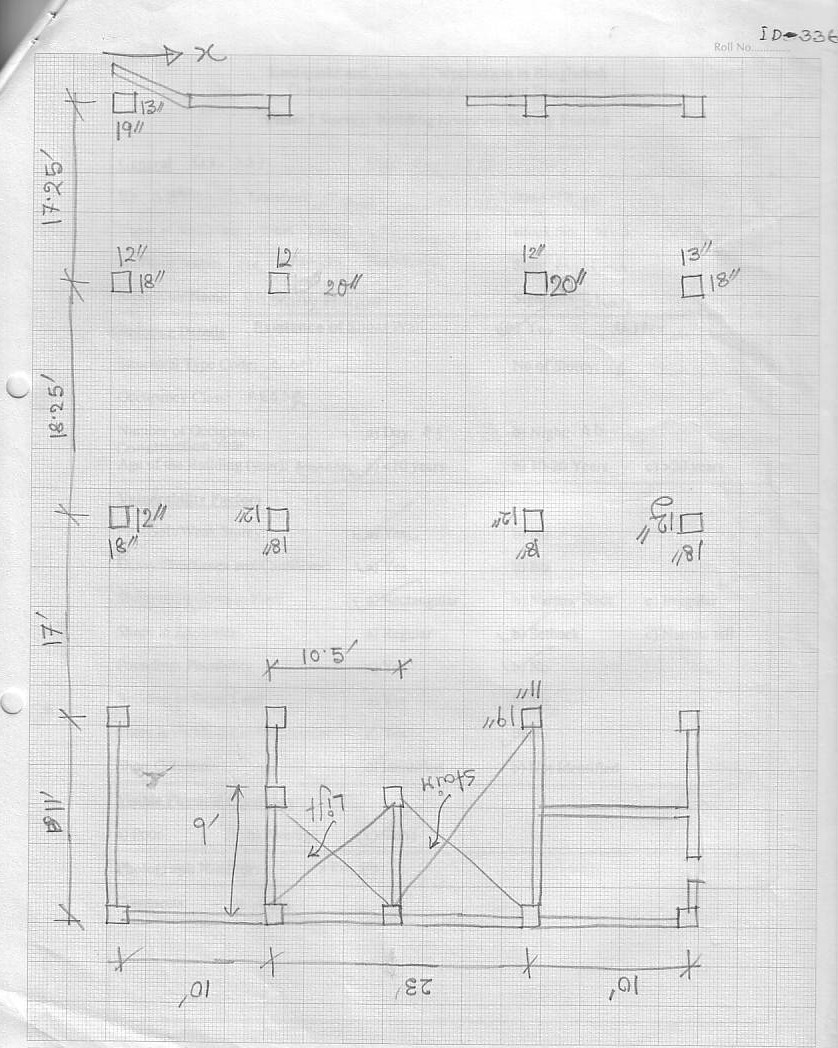 ID-336
Roll No..........
x
13"
19"
17.25'
12"
18"
12
20"
12"
20"
13"
18"
18.25'
12"
18"
12"
18"
12"
18"
12"
18"
17'
10.5'
11"
19"
11'
9'
Lift
Stair
10'
23'
10'